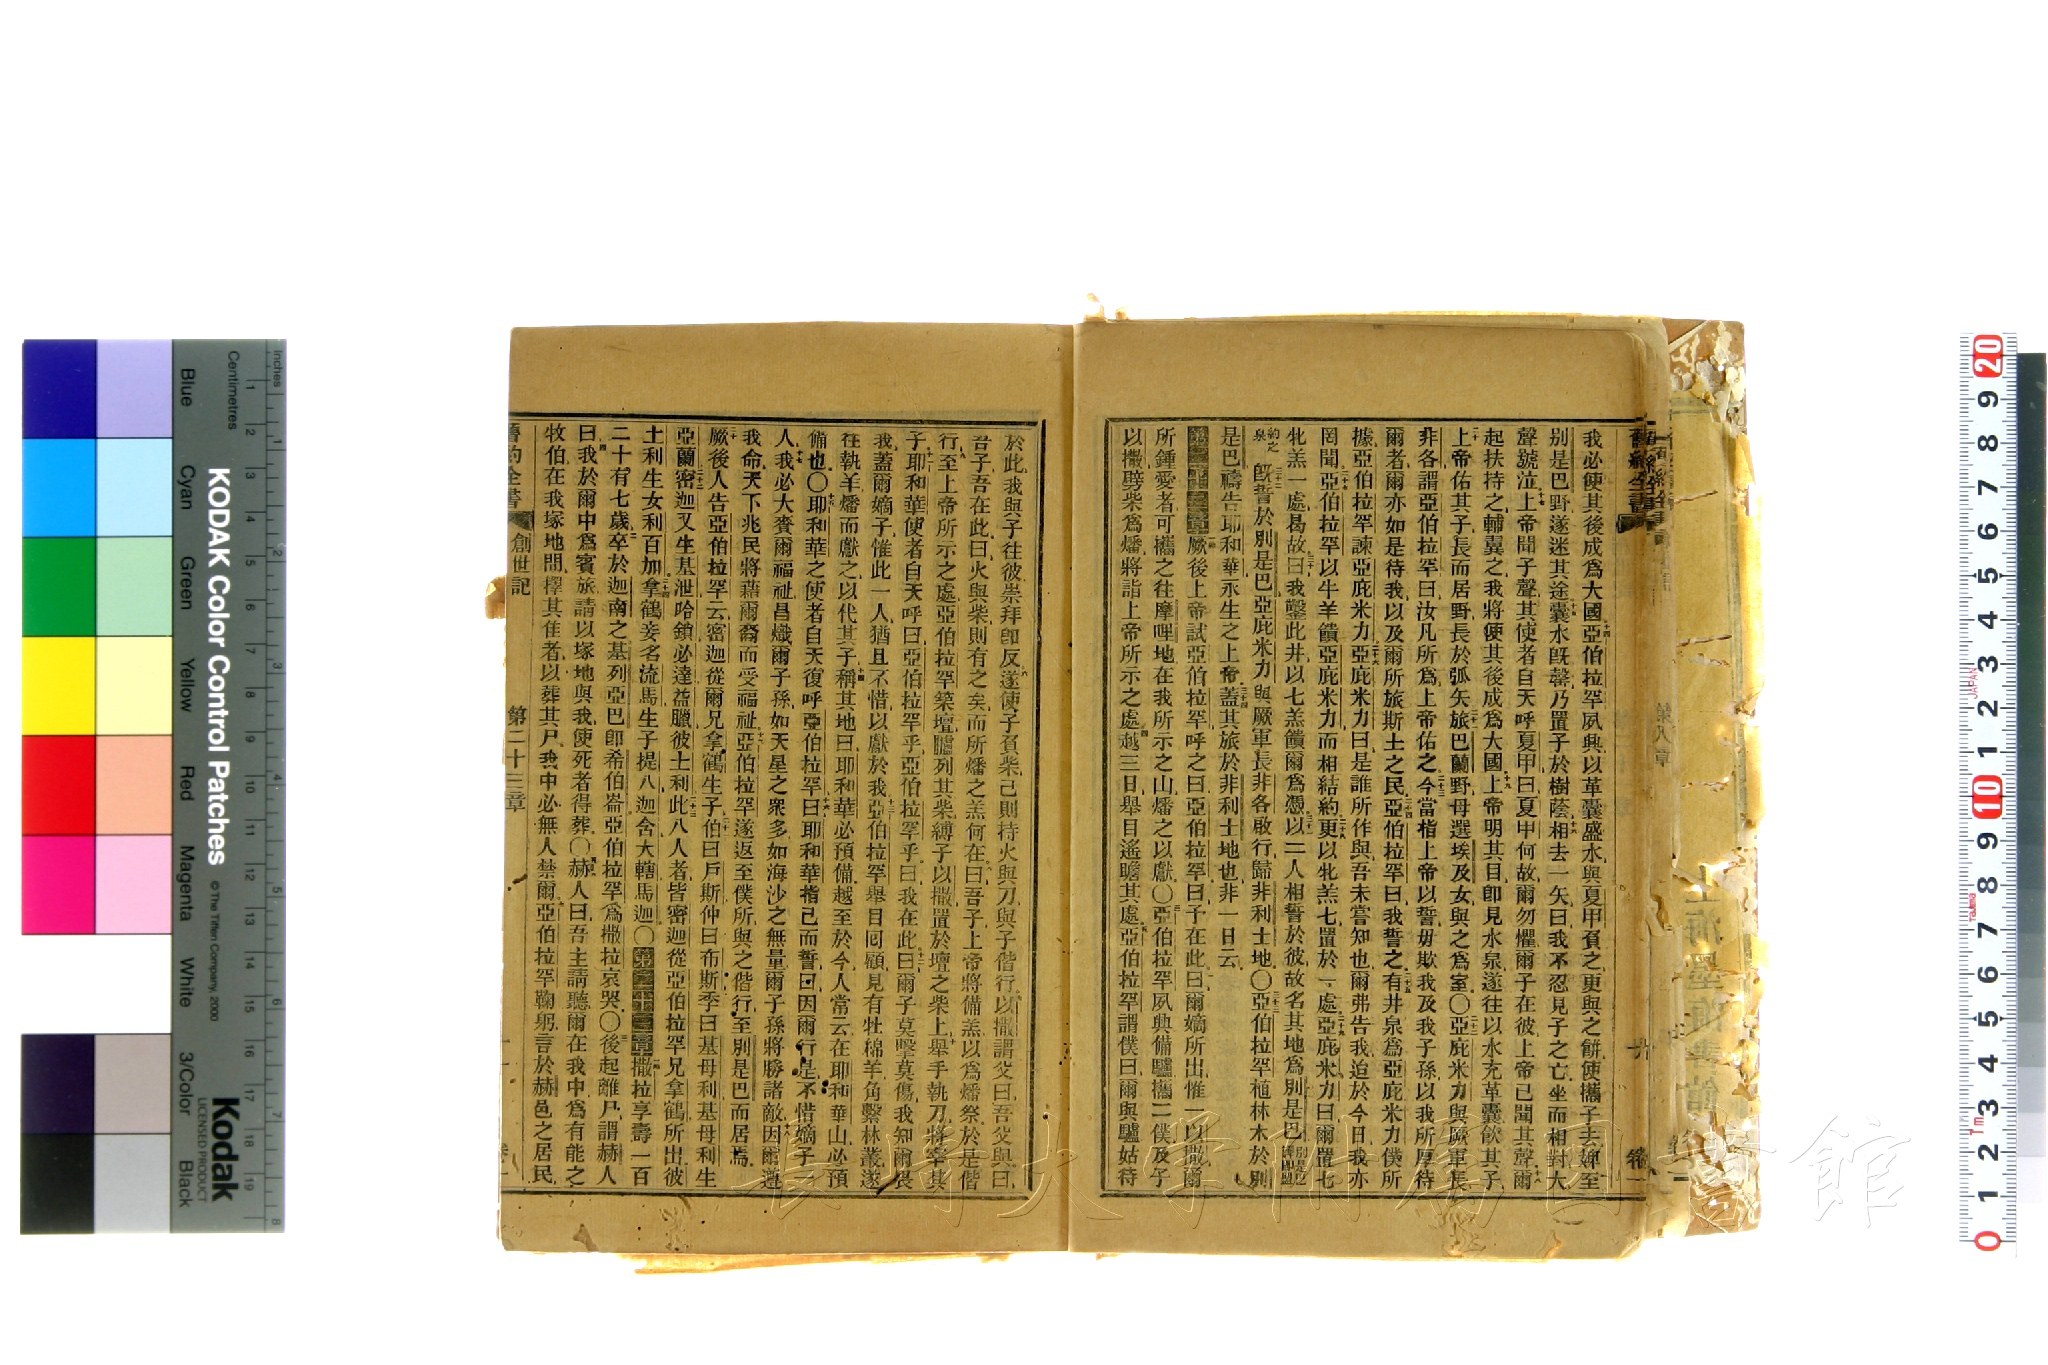 我必使其後成爲大國亞伯拉罕夙興以革囊盛水與夏甲負之更與之餅使攜子去婢至
別是巴野遂迷其途囊水旣罄乃置子於樹蔭相去一矢曰我不忍見子之亡坐而相對大
聲號泣上帝聞子聲其使者自天呼夏甲曰夏甲何故爾勿懼爾子在彼上帝已聞其聲爾
起扶持之輔翼之我將使其後成爲大國上帝明其目卽見水泉遂往以水充革囊飮其子
上帝佑其子長而居野長於弧矢旅巴蘭野母選埃及女與之爲室〇亞庇米力與厥軍長
非各謂亞伯拉罕曰汝凡所爲上帝佑之今當指上帝以誓毋欺我及我子孫以我所厚待
爾者爾亦如是待我以及爾所旅斯土之民亞伯拉罕曰我誓之有井泉爲亞庇米力僕所
據亞伯拉罕諫亞庇米力亞庇米力曰是誰所作與吾未嘗知也爾弗告我迨於今日我亦
罔聞亞伯拉罕以牛羊饋亞庇米力而相結約更以牝羔七置於一處亞庇米力曰爾置七
牝羔一處曷故曰我鑿此井以七羔饋爾爲憑以二人相誓於彼故名其地爲別是巴
約之泉旣誓於別是巴亞庇米力與厥軍長非各啟行歸非利士地〇亞伯拉罕植林木於別
是巴禱告耶和華永生之上帝蓋其旅於非利士地也非一日云
第二十二章厥後上帝試亞伯拉罕呼之曰亞伯拉罕曰予在此曰爾嫡所出惟一以撒爾
所鍾愛者可攜之往摩哩地在我所示之山燔之以獻〇亞伯拉罕夙興備驢攜二僕及子
以撒劈柴爲燔將詣上帝所示之處越三日舉目遙瞻其處亞伯拉罕謂僕曰爾與驢姑待
於此我與子往彼崇拜卽反遂使子負柴己則持火與刀與子偕行以撒謂父曰吾父與曰
吾子吾在此曰火與柴則有之矣而所燔之羔何在曰吾子上帝將備羔以爲燔祭於是偕
行至上帝所示之處亞伯拉罕築壇臚列其柴縛子以撒置於壇之柴上舉手執刀將宰其
子耶和華使者自天呼曰亞伯拉罕乎亞伯拉罕乎曰我在此曰爾子莫擊莫傷我知爾畏
我蓋爾嫡子惟此一人猶且不惜以獻於我亞伯拉罕舉目回顧見有牡綿羊角繫林叢遂
往執羊燔而獻之以代其子稱其地曰耶和華必預備越至於今人常云在耶和華山必預
備也〇耶和華之使者自天復呼亞伯拉罕曰耶和華指己而誓曰因爾行是不惜嫡子一
人我必大賚爾福祉昌熾爾子孫如天星之衆多如海沙之無量爾子孫將勝諸敵因爾遵
我命天下兆民將藉爾裔而受福祉亞伯拉罕遂返至僕所與之偕行至別是巴而居焉
厥後人告亞伯拉罕云密迦從爾兄拿鶴生子伯曰戶斯仲曰布斯季曰基母利基母利生
亞蘭密迦又生基泄哈鎖必達益臘彼土利此八人者皆密迦從亞伯拉罕兄拿鶴所出彼
土利生女利百加拿鶴妾名流馬生子提八迦含大轄馬迦〇第二十三章撒拉享壽一百
二十有七歲卒於迦南之基列亞巴卽希伯崙亞伯拉罕爲撒拉哀哭〇後起離尸謂赫人
曰我於爾中爲賓旅請以塚地與我使死者得葬〇赫人曰吾主請聽爾在我中爲有能之
牧伯在我塚地間擇其佳者以葬其尸我中必無人禁爾亞伯拉罕鞠躬言於赫邑之居民
舊約全書 創世記 第二十三章
長崎大学附属図書館
KODAK Color Control Patches
© The Tiffen Company, 2000
Kodak
LICENSED PRODUCT
Inches
Centimetres
Blue
Cyan
Green
Yellow
Red
Magenta
White
3/Color
Black